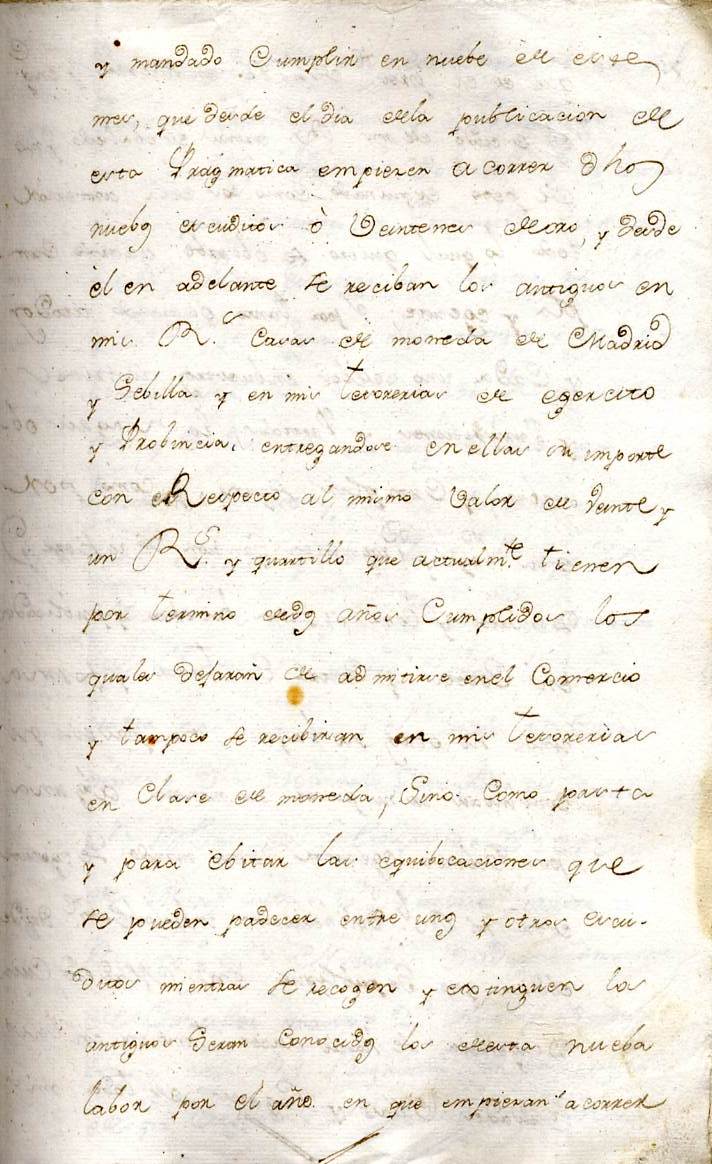 y mandado Cumplir en nuebe de este
mes, que desde el dia dela publicacion de
esta Pragmatica empiezen a correr dhos
nuebos escuditos ò Veintenes de oro, y desde
èl en adelante se reciban los antiguos en
mis R.s Casas de moneda de Madrid
y Sebilla y en mis tesorerias de egercito
y Probincia, entregandose en ellas su importe
con el Respecto al mismo Valor de Veinte y
un R.s y quartillo que actualm.te tienen
por termino de dos años Cumplidos los
quales dejaràn de admitirse enel Comercio
y tampoco se recibiran en mis tesorerias
en Clase de moneda, Sino Como pasta
y para ebitar las equibocaciones que
se pueden padecer entre unos y otros escu-
ditos mientras se recogen y extinguen los
antiguos Seran Conocidos los de esta nueba
labor por el año en que empiezan a correr